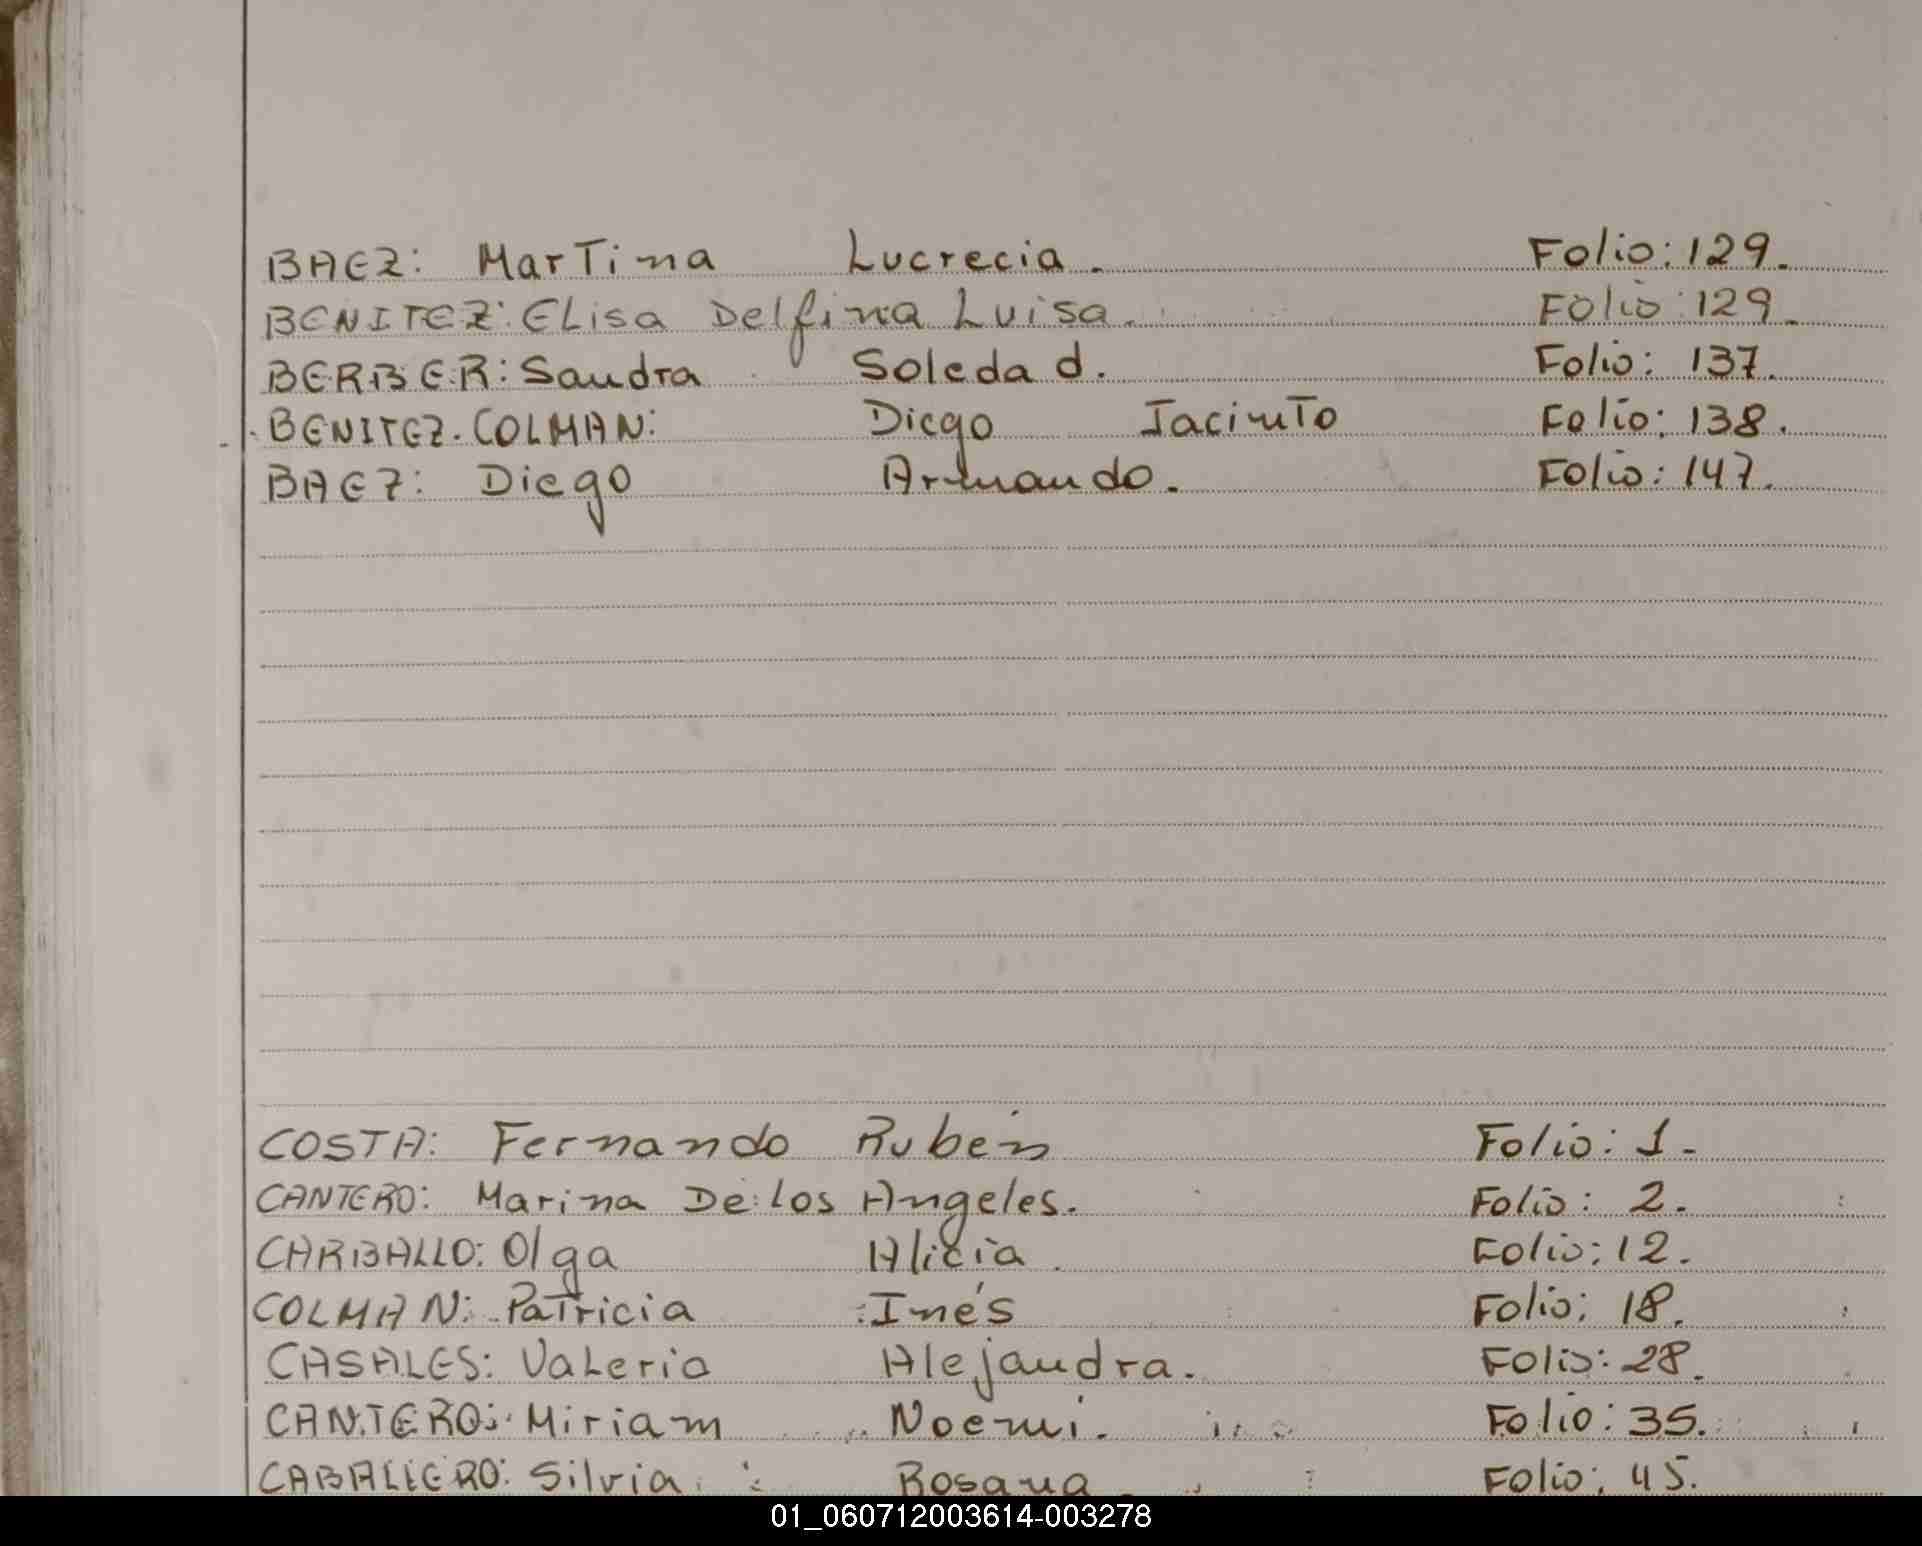 BAEZ: Martina Lucrecia. Folio: 129.
BENITEZ: Elisa Delfina Luisa. Folio: 129.
BERBER: Sandra Soledad. Folio: 137.
BENITEZ. COLMAN: Diego Jacinto Folio: 138.
BAEZ: Diego Armando. Folio: 147.
COSTA: Fernando Rubén Folio: 1.
CANTERO: Marina De los Angeles. Folio: 2.
CARBALLO: Olga Alicia. Folio: 12.
COLMAN: Patricia Inés Folio: 18.
CASALES: Valeria Alejandra. Folio: 28.
CANTERO: Miriam Noemi. Folio: 35.
CABALLERO: Silvia Rosana. Folio: 45.
01_060712003614-003278